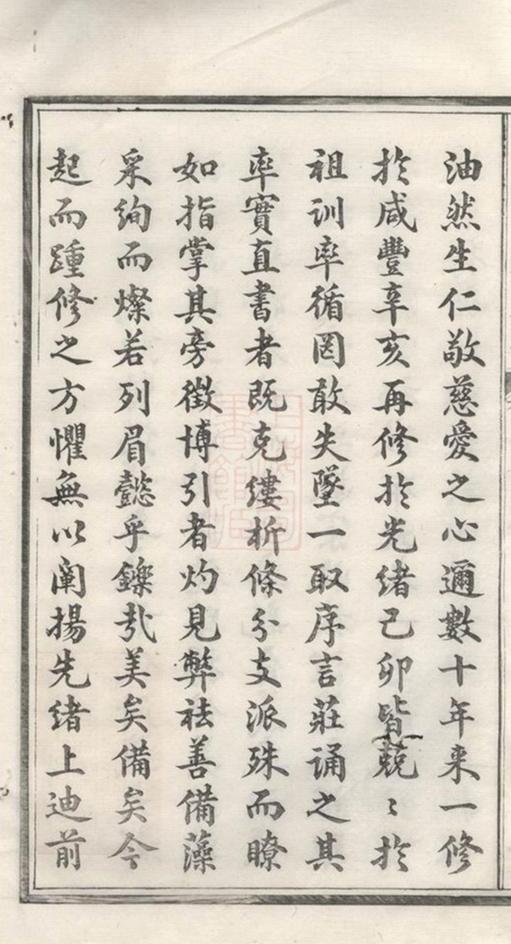 油然生仁敬慈愛之心邇數十年来一修
扵咸豐辛亥再修扵光緒己卯皆兢〻扵
祖训率循罔敢失墜一取序言莊誦之其
率實直書者既克縷析條分支派殊而瞭
如指掌其旁徵博引者灼見弊祛善備藻
采绚而燦若列眉懿乎鑠㢤美矣備矣今
起而踵修之方懼無以闡揚先緒上迪前